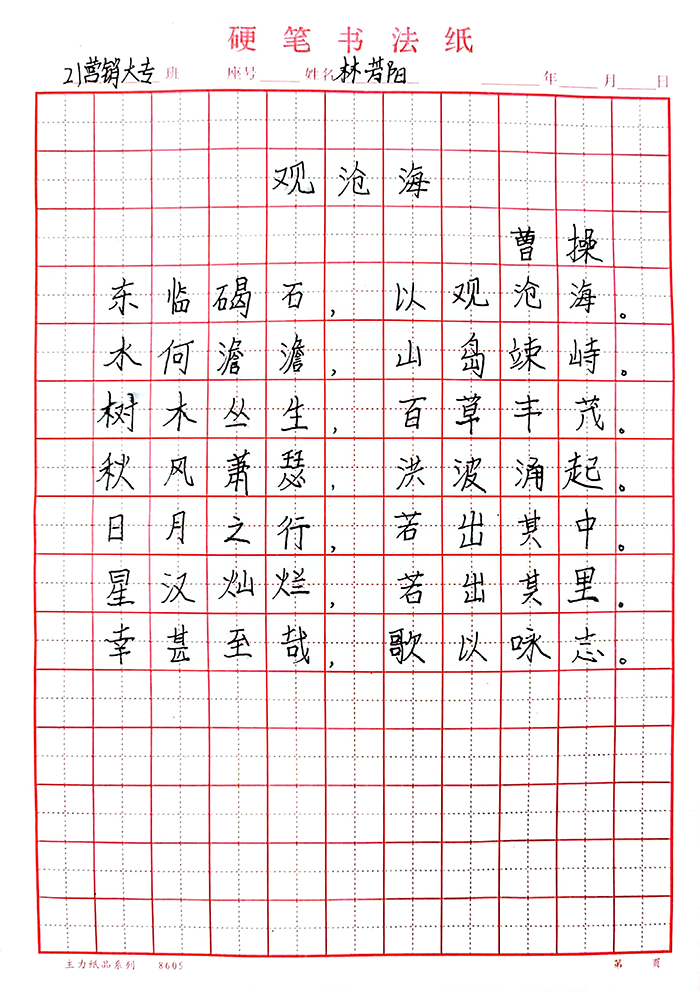 硬笔书法纸
21营销大专 班 座号 姓名 林若阳 年 月 日
观沧海
曹操
东临碣石,以观沧海。
水何澹澹,山岛竦峙。
树木丛生,百草丰茂。
秋风萧瑟,洪波涌起。
日月之行,若出其中。
星汉灿烂,若出其里。
幸甚至哉,歌以咏志。
主力纸品系列 8605 第 页